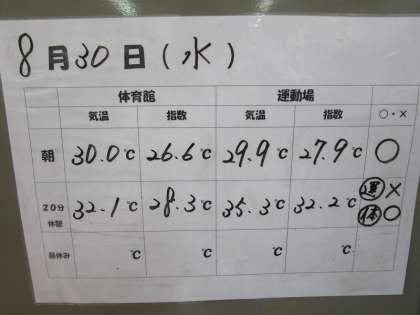 8月30日(水)
体育館 運動場
気温 指数 気温 指数 ○・×
朝 30.0℃ 26.6℃ 29.9℃ 27.9℃ ○
20分休憩 32.1℃ 28.3℃ 35.3℃ 32.2℃ 運× 体○
昼休み ℃ ℃ ℃ ℃